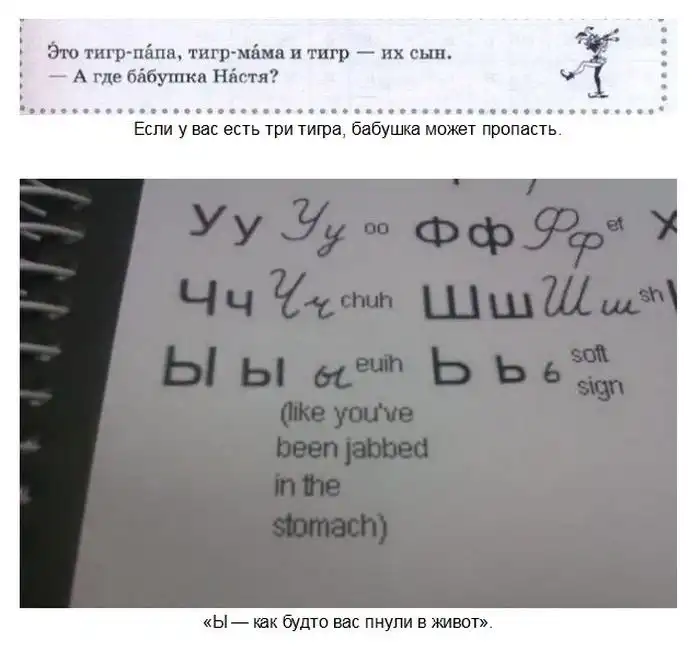 Э́то тигр-па́па, тигр-ма́ма и тигр — их сын.
— А где ба́бушка На́стя?
Если у вас есть три тигра, бабушка может пропасть.
У у У у oo Ф ф Ф ф ef Х
Ч ч Ч ч chuh Ш ш Ш ш sh
Ы ы ы euih Ь ь ь soft sign
(like you've
been jabbed
in the
stomach)
«Ы — как будто вас пнули в живот».